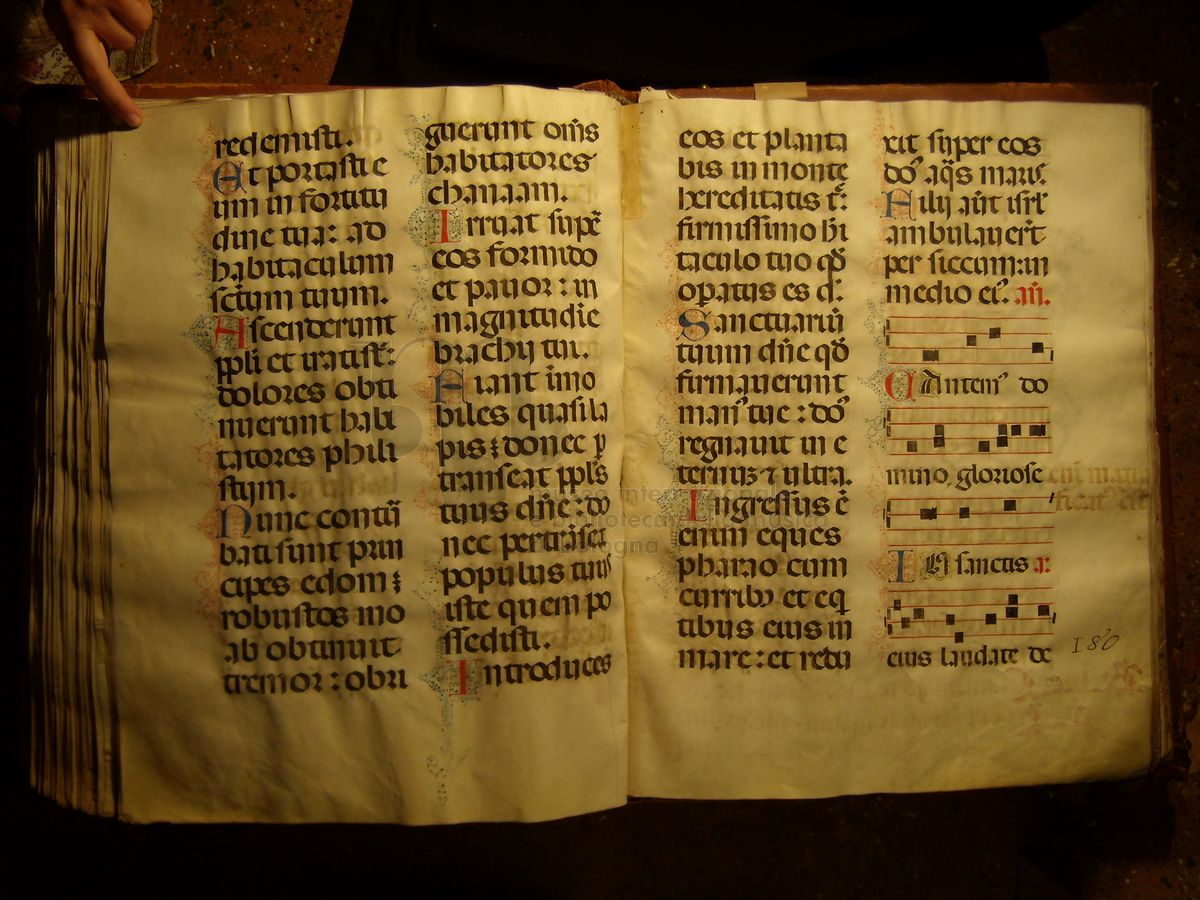 redemisti.
Et portasti e
um in fortitu
dine tua: ad
habitaculum
sc̄tum tuum.
Ascenderunt
pp̄li et irati st̄:
dolores obti
nuerunt habi
tatores phili
stijm.
Nunc contū
bati sunt prin
cipes edom:
robustos mo
ab obtinuit
tremor: obri
guerunt om̄s
habitatores
chanaam.
Irruat supē
eos formido
et pauor: in
magnitudīe
brachij tui.
Fiant īmo
biles quasi la
pis: donec p̱
transeat ppl̄s
tuus dn̄e: do
nec pertrāseat
populus tuus
iste quem po
ssedisti.
Introduces
eos et planta
bis in monte
hereditatis t̄:
firmissimo hi
taculo tuo qđ
opatus es d̄:
Sanctuariū
tuum dn̄e qđ
firmauerunt
man⁹ tue: do᷒
regnauit in e
ternuʒ ⁊ ultra.
Ingressus ē
enim eques
pharao cum
curribꝫ et eq
tibus eius in
mare: et redu
xit super eos
do᷒ aq̄s maris.
Filij aūt isrl̄
ambulauer̄t
per siccum: in
medio ei⁹. an̄.
CAntem⁹ do
mino, gloriose
IN sanctis a:
eius laudate de
180